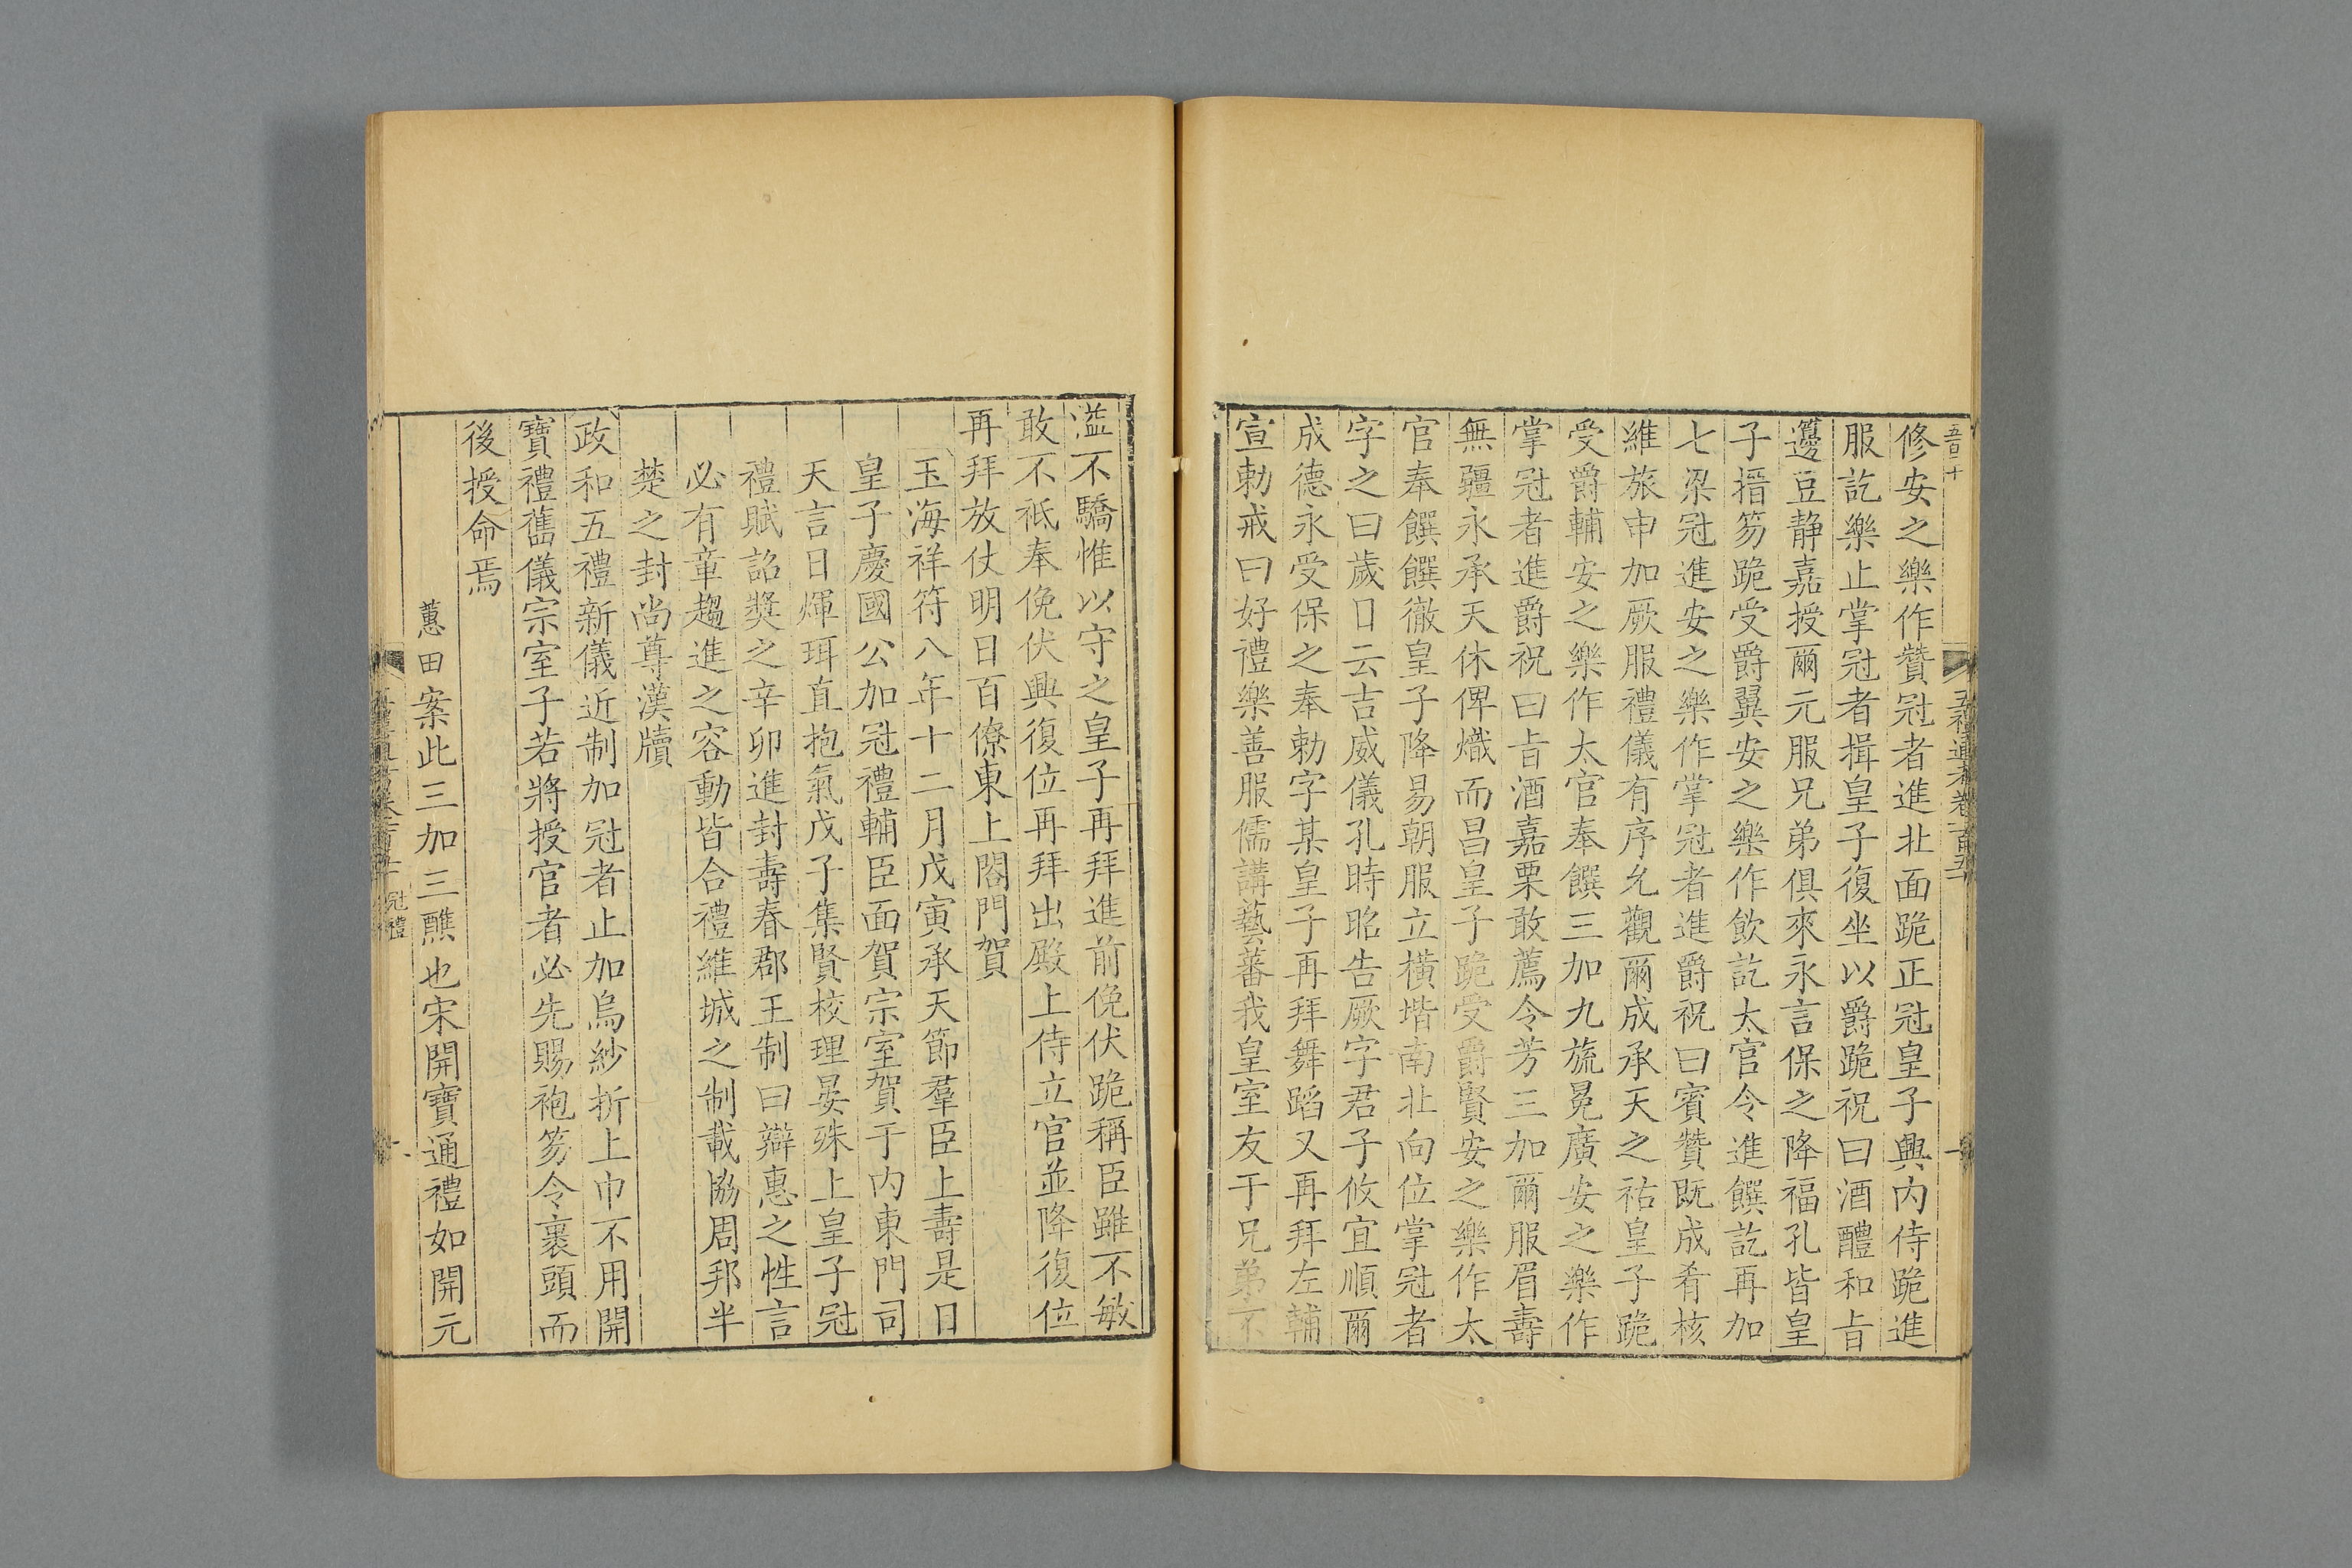 五百二十
五禮通考卷一百五十
修安之樂作贊冠者進北面跪正冠皇子興內侍跪進
服訖樂止掌冠者揖皇子復坐以爵跪祝曰酒醴和旨
籩豆静嘉授爾元服兄弟俱來永言保之降福孔皆皇
子搢笏跪受爵翼安之樂作飲訖太官令進饌訖再加
七梁冠進安之樂作掌冠者進爵祝曰賓贊既成肴核
維旅申加厥服禮儀有序允觀爾成承天之祜皇子跪
受爵輔安之樂作太官奉饌三加九旒冕廣安之樂作
掌冠者進爵祝曰旨酒嘉栗敢薦令芳三加爾服眉壽
無疆永承天休俾熾而昌皇子跪受爵賢安之樂作太
官奉饌饌徹皇子降易朝服立橫堦南北向位掌冠者
字之曰歲日云吉威儀孔時昭告厥字君子攸宜順爾
成德永受保之奉勅字某皇子再拜舞蹈又再拜左輔
宣勅戒曰好禮樂善服儒講藝蕃我皇室友于兄弟不
溢不驕惟以守之皇子再拜進前俛伏跪稱臣雖不敏
敢不祗奉俛伏興復位再拜出殿上侍立官並降復位
再拜放仗明日百僚東上閤門賀
玉海祥符八年十二月戊寅承天節羣臣上壽是日
皇子慶國公加冠禮輔臣面賀宗室賀于内東門司
天言日煇珥直抱氣戊子集賢校理晏殊上皇子冠
禮賦詔奬之辛卯進封壽春郡王制曰辯惠之性言
必有章趨進之容動皆合禮維城之制載協周邦半
楚之封尚尊漢牘
政和五禮新儀近制加冠者止加烏紗折上巾不用開
寶禮舊儀宗室子若將授官者必先賜袍笏令裹頭而
後授命焉
蕙田案此三加三醮也宋開寶通禮如開元
冠禮